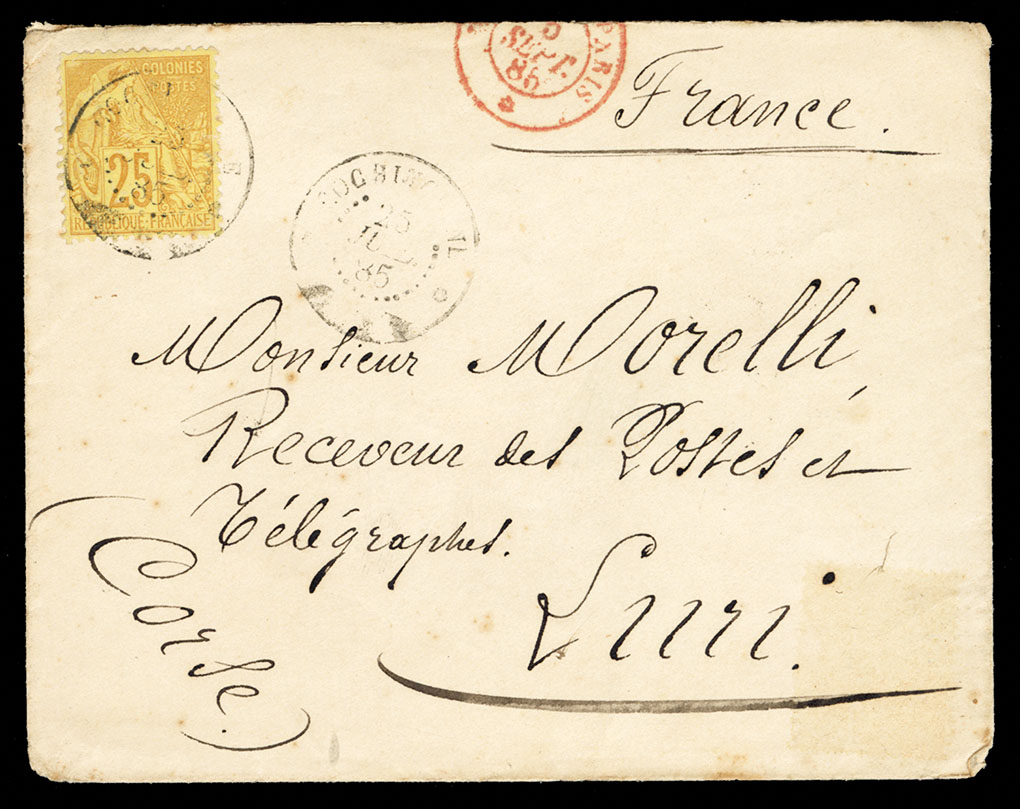 COLONIES
POSTES
25
REPUBLIQUE FRANCAISE
PARIS
5
SEPT.
85
France.
25
JUIL
85
Monsieur Morelli,
Receveur des Postes et
Télégraphes.
Luri.
(Corse.)